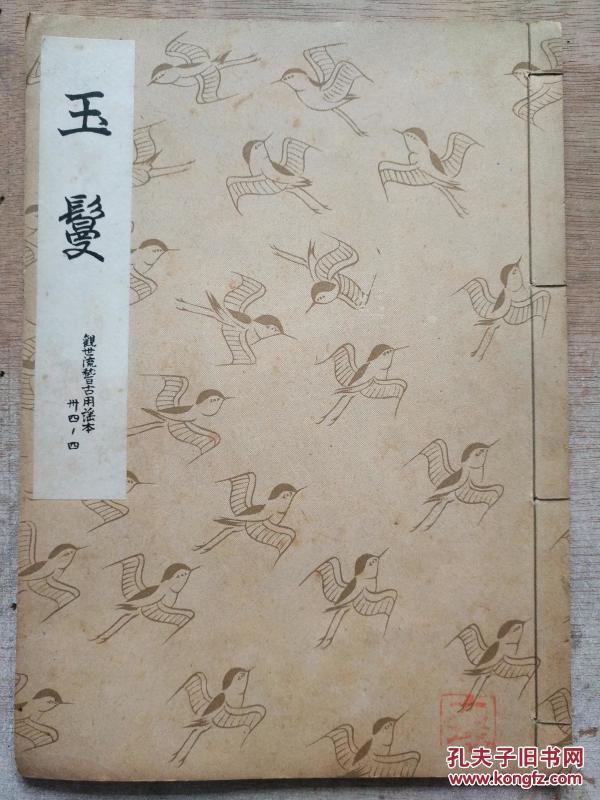 玉鬘
觀世流稽古用謡本
卅四ノ四
孔夫子旧书网
www.kongfz.com